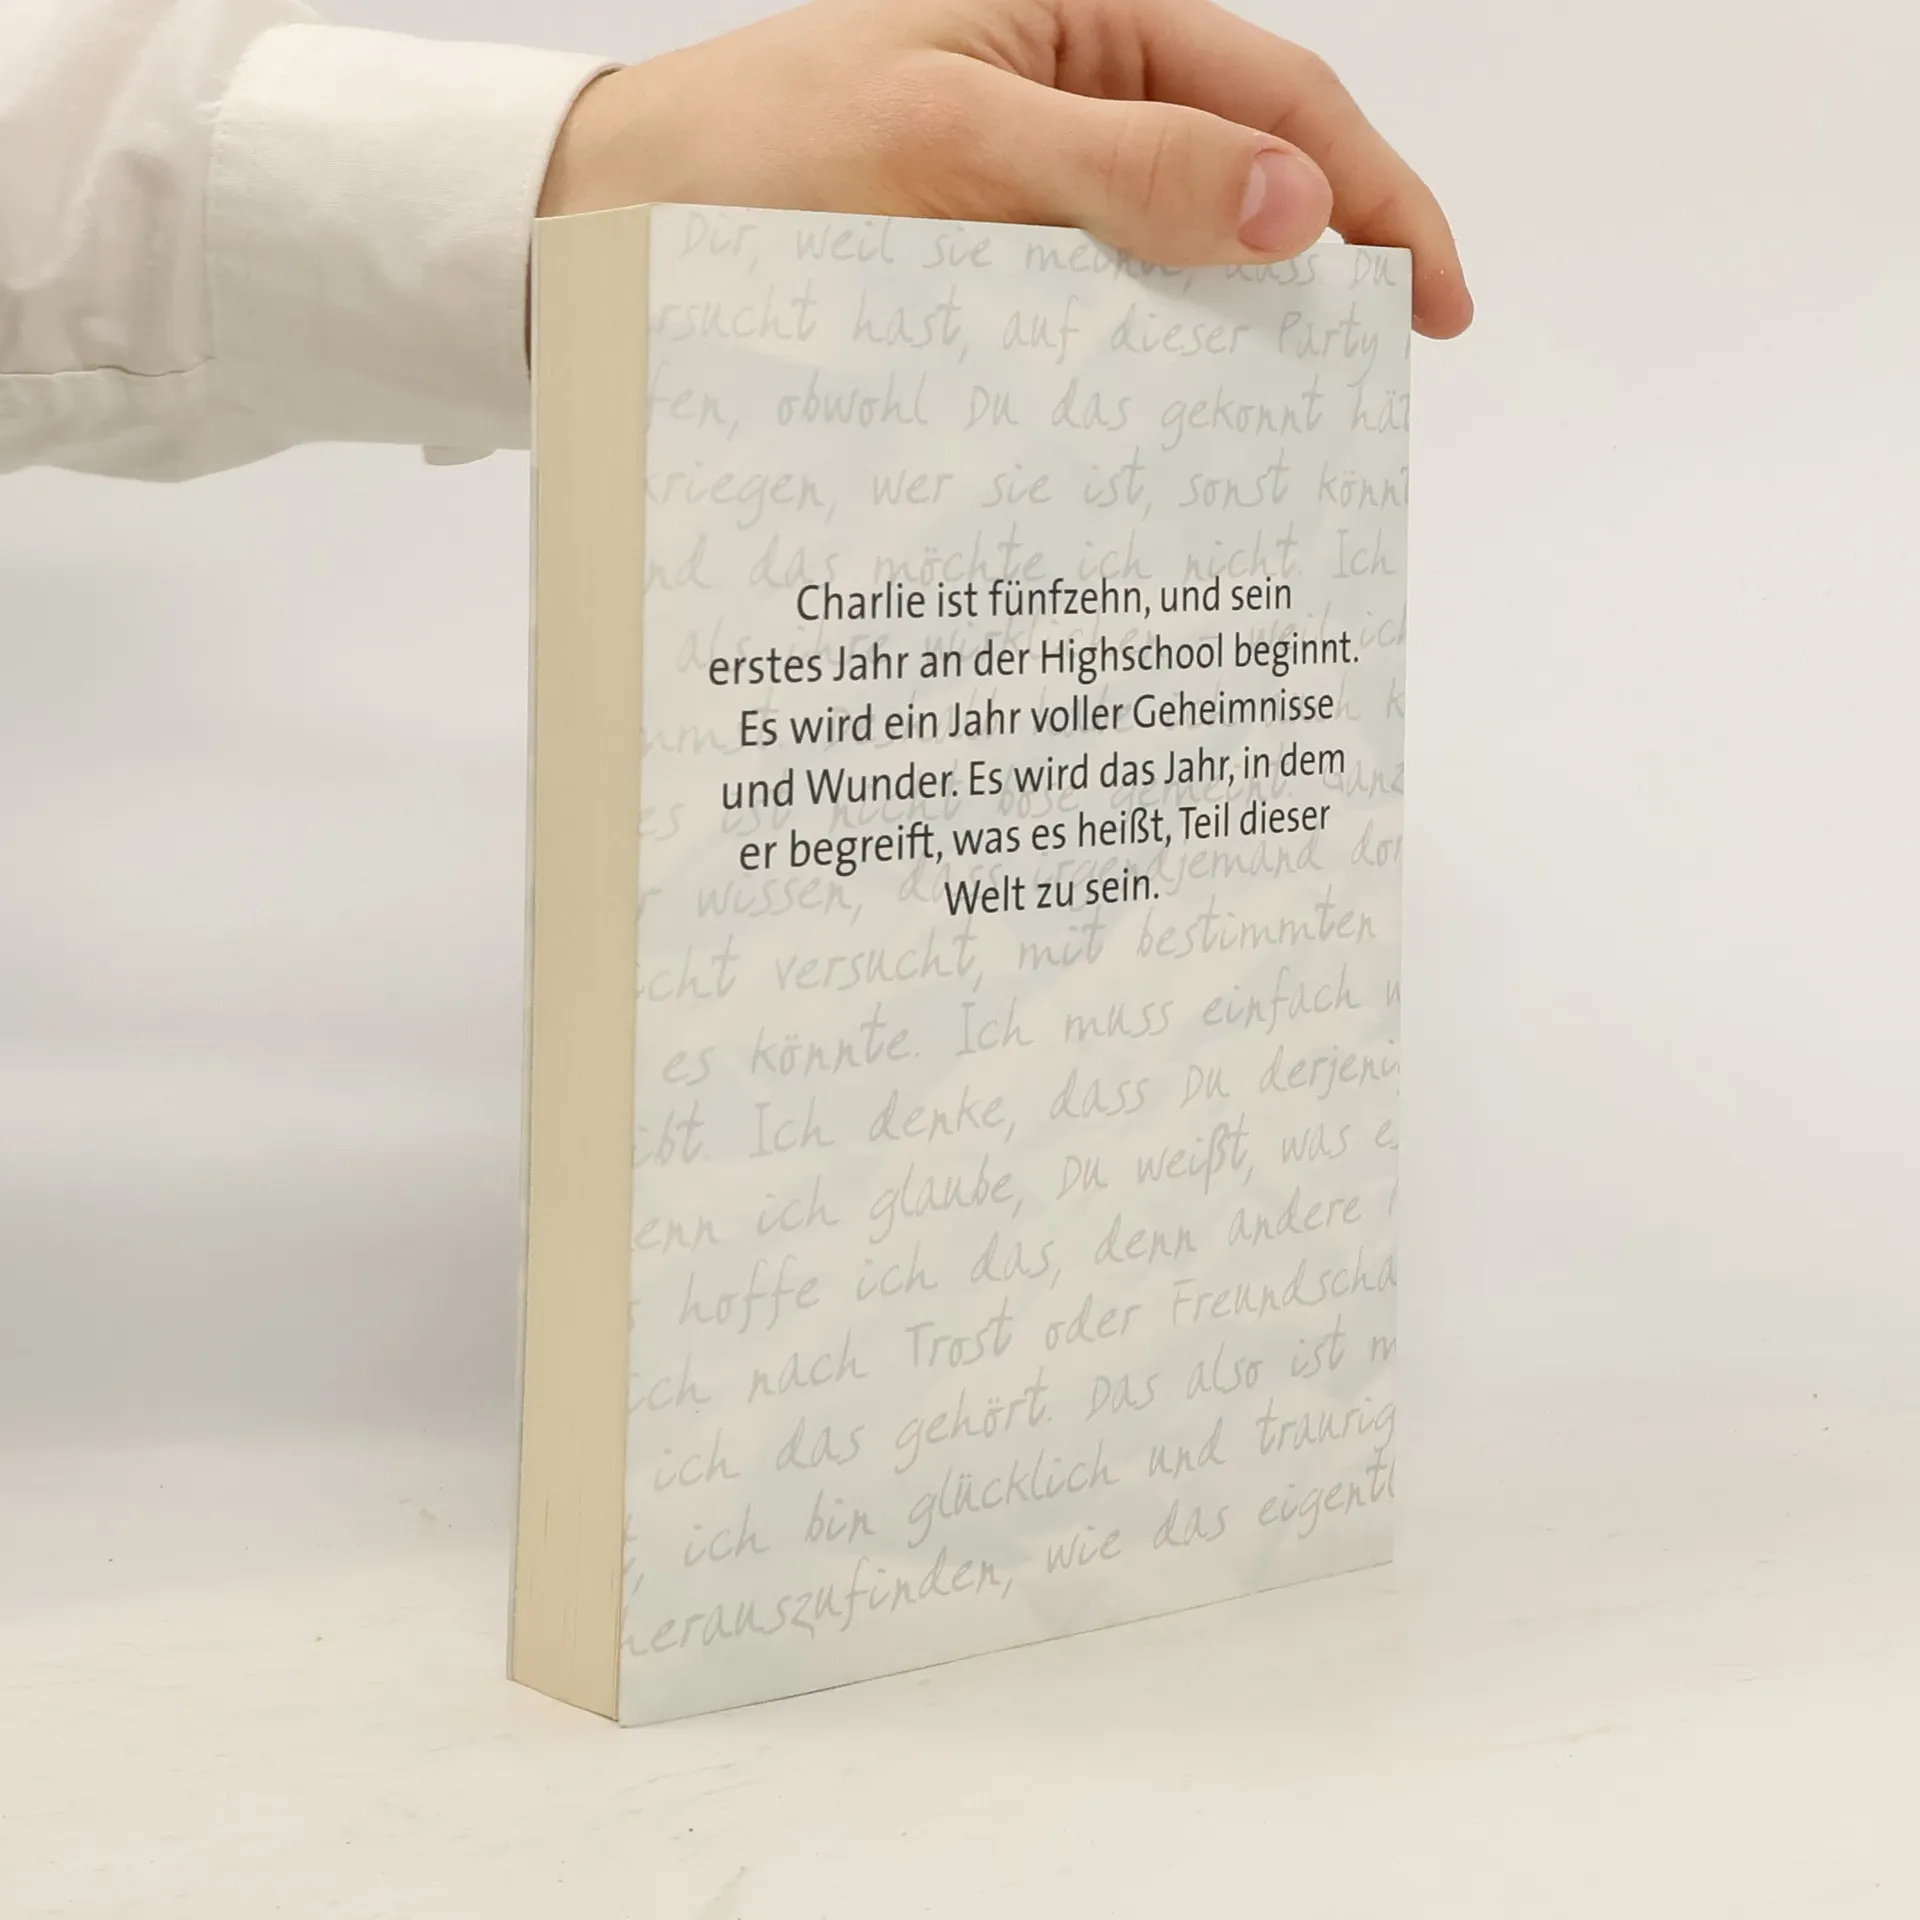 Dir, weil sie dass Du
rsucht hast, auf dieser Party
fen, obwohl Du das gekonnt hät
kriegen, wer sie ist, sonst könnt
nd das möchte ich nicht. Ich
Charlie ist fünfzehn, und sein
erstes Jahr an der Highschool beginnt.
Es wird ein Jahr voller Geheimnisse
und Wunder. Es wird das Jahr, in dem
er begreift, was es heißt, Teil dieser
Welt zu sein.
es ist nicht böse gemeint. Ganz
r wissen, dass irgendjemand dor
icht versucht, mit bestimmten
es könnte. Ich muss einfach w
ibt. Ich denke, dass Du derjeni
enn ich glaube, Du weißt, was e
s hoffe ich das, denn andere
ich nach Trost oder Freundscha
ich das gehört. Das also ist m
t, ich bin glücklich und traurig
herauszufinden, wie das eigentl